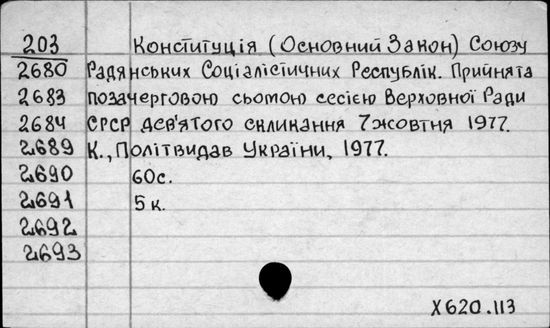 203 Конституція (Основний Закон) Союзу
2680 Радянських Соціалістичних Республік. Прийнята
2683 позачерговою сьомою сесією Верховної Ради
2684 СРСР дев'ятого скликання 7 жовтня 1977.
2689 К., Політвидав України, 1977.
2690 60с.
2691 5 к.
2692
2693
X620.113